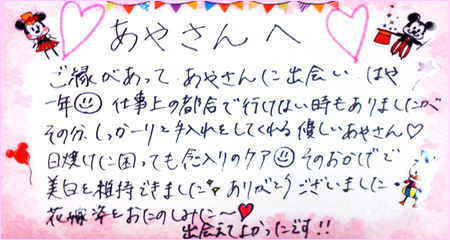 あやさんへ
ご縁があって あやさんに出会い はや
一年 仕事上の都合で行けない時もありましたが
その分しっかーりと手入れをしてくれる優しいあやさん♡
日焼けに困っても念入りのケア そのおかげで
美白を維持できました ありがとうございました
花嫁姿をおたのしみに〜♥
出会えてよかったです!!